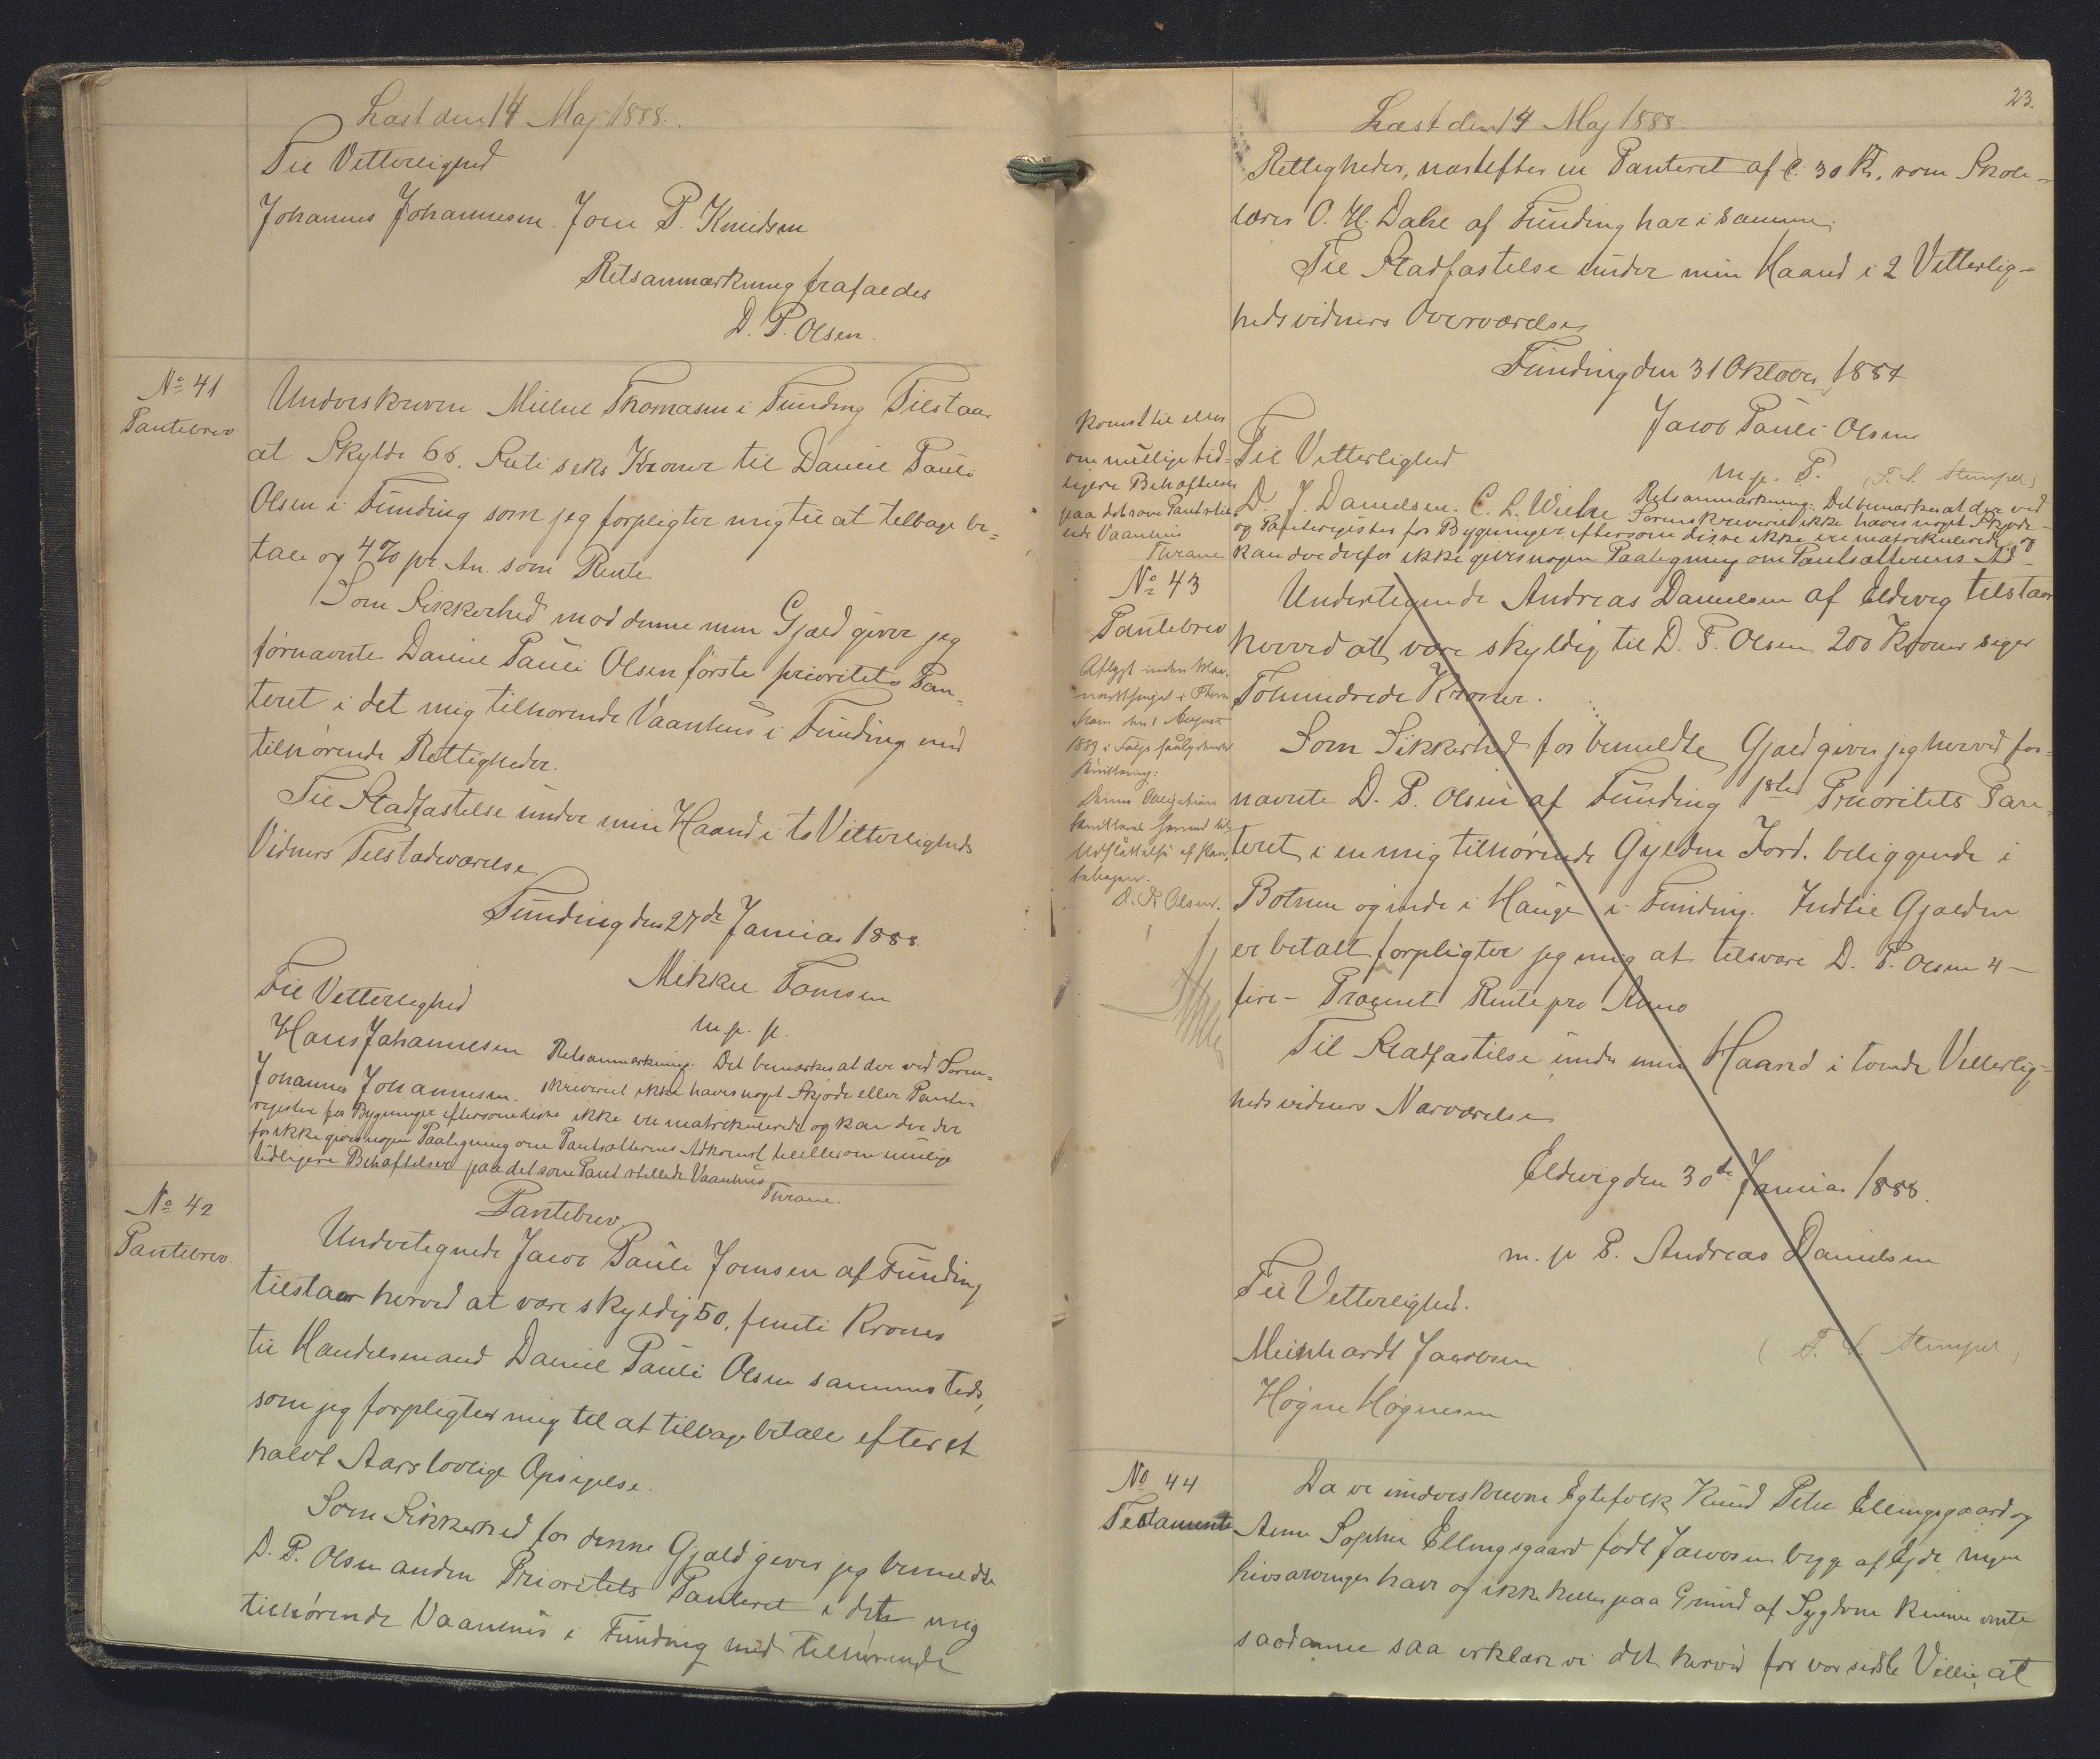 Læst den 14 Maj 1888.
Til Vitterlighed
Johannes Johannesen. Joen P. Knudsen
Retsanmærkning frafaldes
D. P. Olsen.
No 41
Pantebrev
Underskrevne Mikkel Thomasen i Funding Tilstaar
at Skylde 66. Sekti seks Kroner til Daniel Pauli
Olsen i Funding som jeg forpligter mig til at tilbage be=
tale og 4% pr. An. som Rente.
Som Sikkerhed mod denne min Gjæld giver jeg
førnævnte Daniel Pauli Olsen første prioritets Pan=
teret i det mig tilhørende Vaanhus i Funding med
tilhørende Rettigheder.
Til Stadfæstelse under min Haand i to Vitterligheds
Vidners Tilstedeværelse
Funding den 27de Januar 1888.
Mikkel Tomsen
m. p. p.
Til Vitterlighed
Hans Johannesen
Johannes Johannesen.
Retsanmærkning: Det bemærkes at der ved Soren=
skriveriet ikke haves noget Skjøde eller Pante=
register for Bygninger eftersom disse ikke ere matrikulerede og kan der der
for ikke gives nogen Paategning om Pantsætterens Adkomst til eller om mulige
tidligere Behæftelser paa det som Pant stillede Vaanhus
Thrane.
No 42
Pantebrev.
Pantebrev.
Undertegnede Jacob Pauli Joensen af Funding
tilstaar herved at være skyldig 50, femti Kroner
til Handelsmand Daniel Pauli Olsen sammesteds,
som jeg forpligter mig til at tilbage betale efter et
halvt Aars lovlige Opsigelse.
Som Sikkerhed for denne Gjæld giver jeg bemeldte
D. P. Olsen anden Prioritets Panteret i det mig
tilhørende Vaanhus i Funding med tilhørende
23.
Læst den 14 Maj 1888.
Rettigheder, næstefter en Panteret af C. 30 Kr. som Skole=
lærer O. H. Dahl af Funding har i samme.
Til Stadfæstelse under min Haand i 2 Vitterlig=
heds vidners Overværelse
Funding den 31 Oktober 1887
Jacob Pauli Olsen
m. p. P. (T. S. Stempel)
Til Vitterlighed
D. J. Danielsen. C. L. Wiehe
Retsanmærkning: Det bemærkes at der ved
Sorenskriveriet ikke haves noget Skjøde-
og Panteregister for Bygninger, eftersom disse ikke ere matrikulerede, og
kan der derfor ikke gives nogen Paategning om Pantsætterens Ad-
komst til eller
om mulige tid=
ligere Behæftelser
paa det som Pant stil
lede Vaanhus
Thrane
No 43
Pantebrev
Aflyst inden
1889 i Følge saalydende
Kvittering:
Denne Obligation
kvitteres herved til
Udslettelse af Pan=
tebogen.
D. P. Olsen.
Undertegnede Andreas Danielsen af Eldevig tilstaar
herved at være skyldig til D. P. Olsen 200 Kroner siger
Tohundrede Kroner.
Som Sikkerhed for bemeldte Gjæld giver jeg herved for=
nævnte D. P. Olsen af Funding 1ste Prioritets Pan=
teret i en mig tilhørende Gylden Jord. beliggende i
Botnen og inde i Hauge i Funding. Indtil Gjælden
er betalt forpligter jeg mig at tilsvare D. P. Olsen 4 -
fire - Procent Rente pro Anno
Til Stadfæstelse under min Haand i tvende Vitterlig=
heds vidners Nærværelse
Eldevig den 30te Januar 1888.
m. p. P. Andreas Danielsen
Til Vitterlighed.
Meinhardt Jacobsen
Høgne Høgnesen
(T. S. Stempel)
No 44
Testamente
Da vi underskrevne Egtefolk Knud Peter Ellingsgaard og
Anne Sophie Ellingsgaard født Jacobsen begge af Ejde ingen
Livsarvinger have og ikke heller paa Grund af Sygdom kunne vente
saadanne saa erklære vi det herved for vor sidste Villie, at